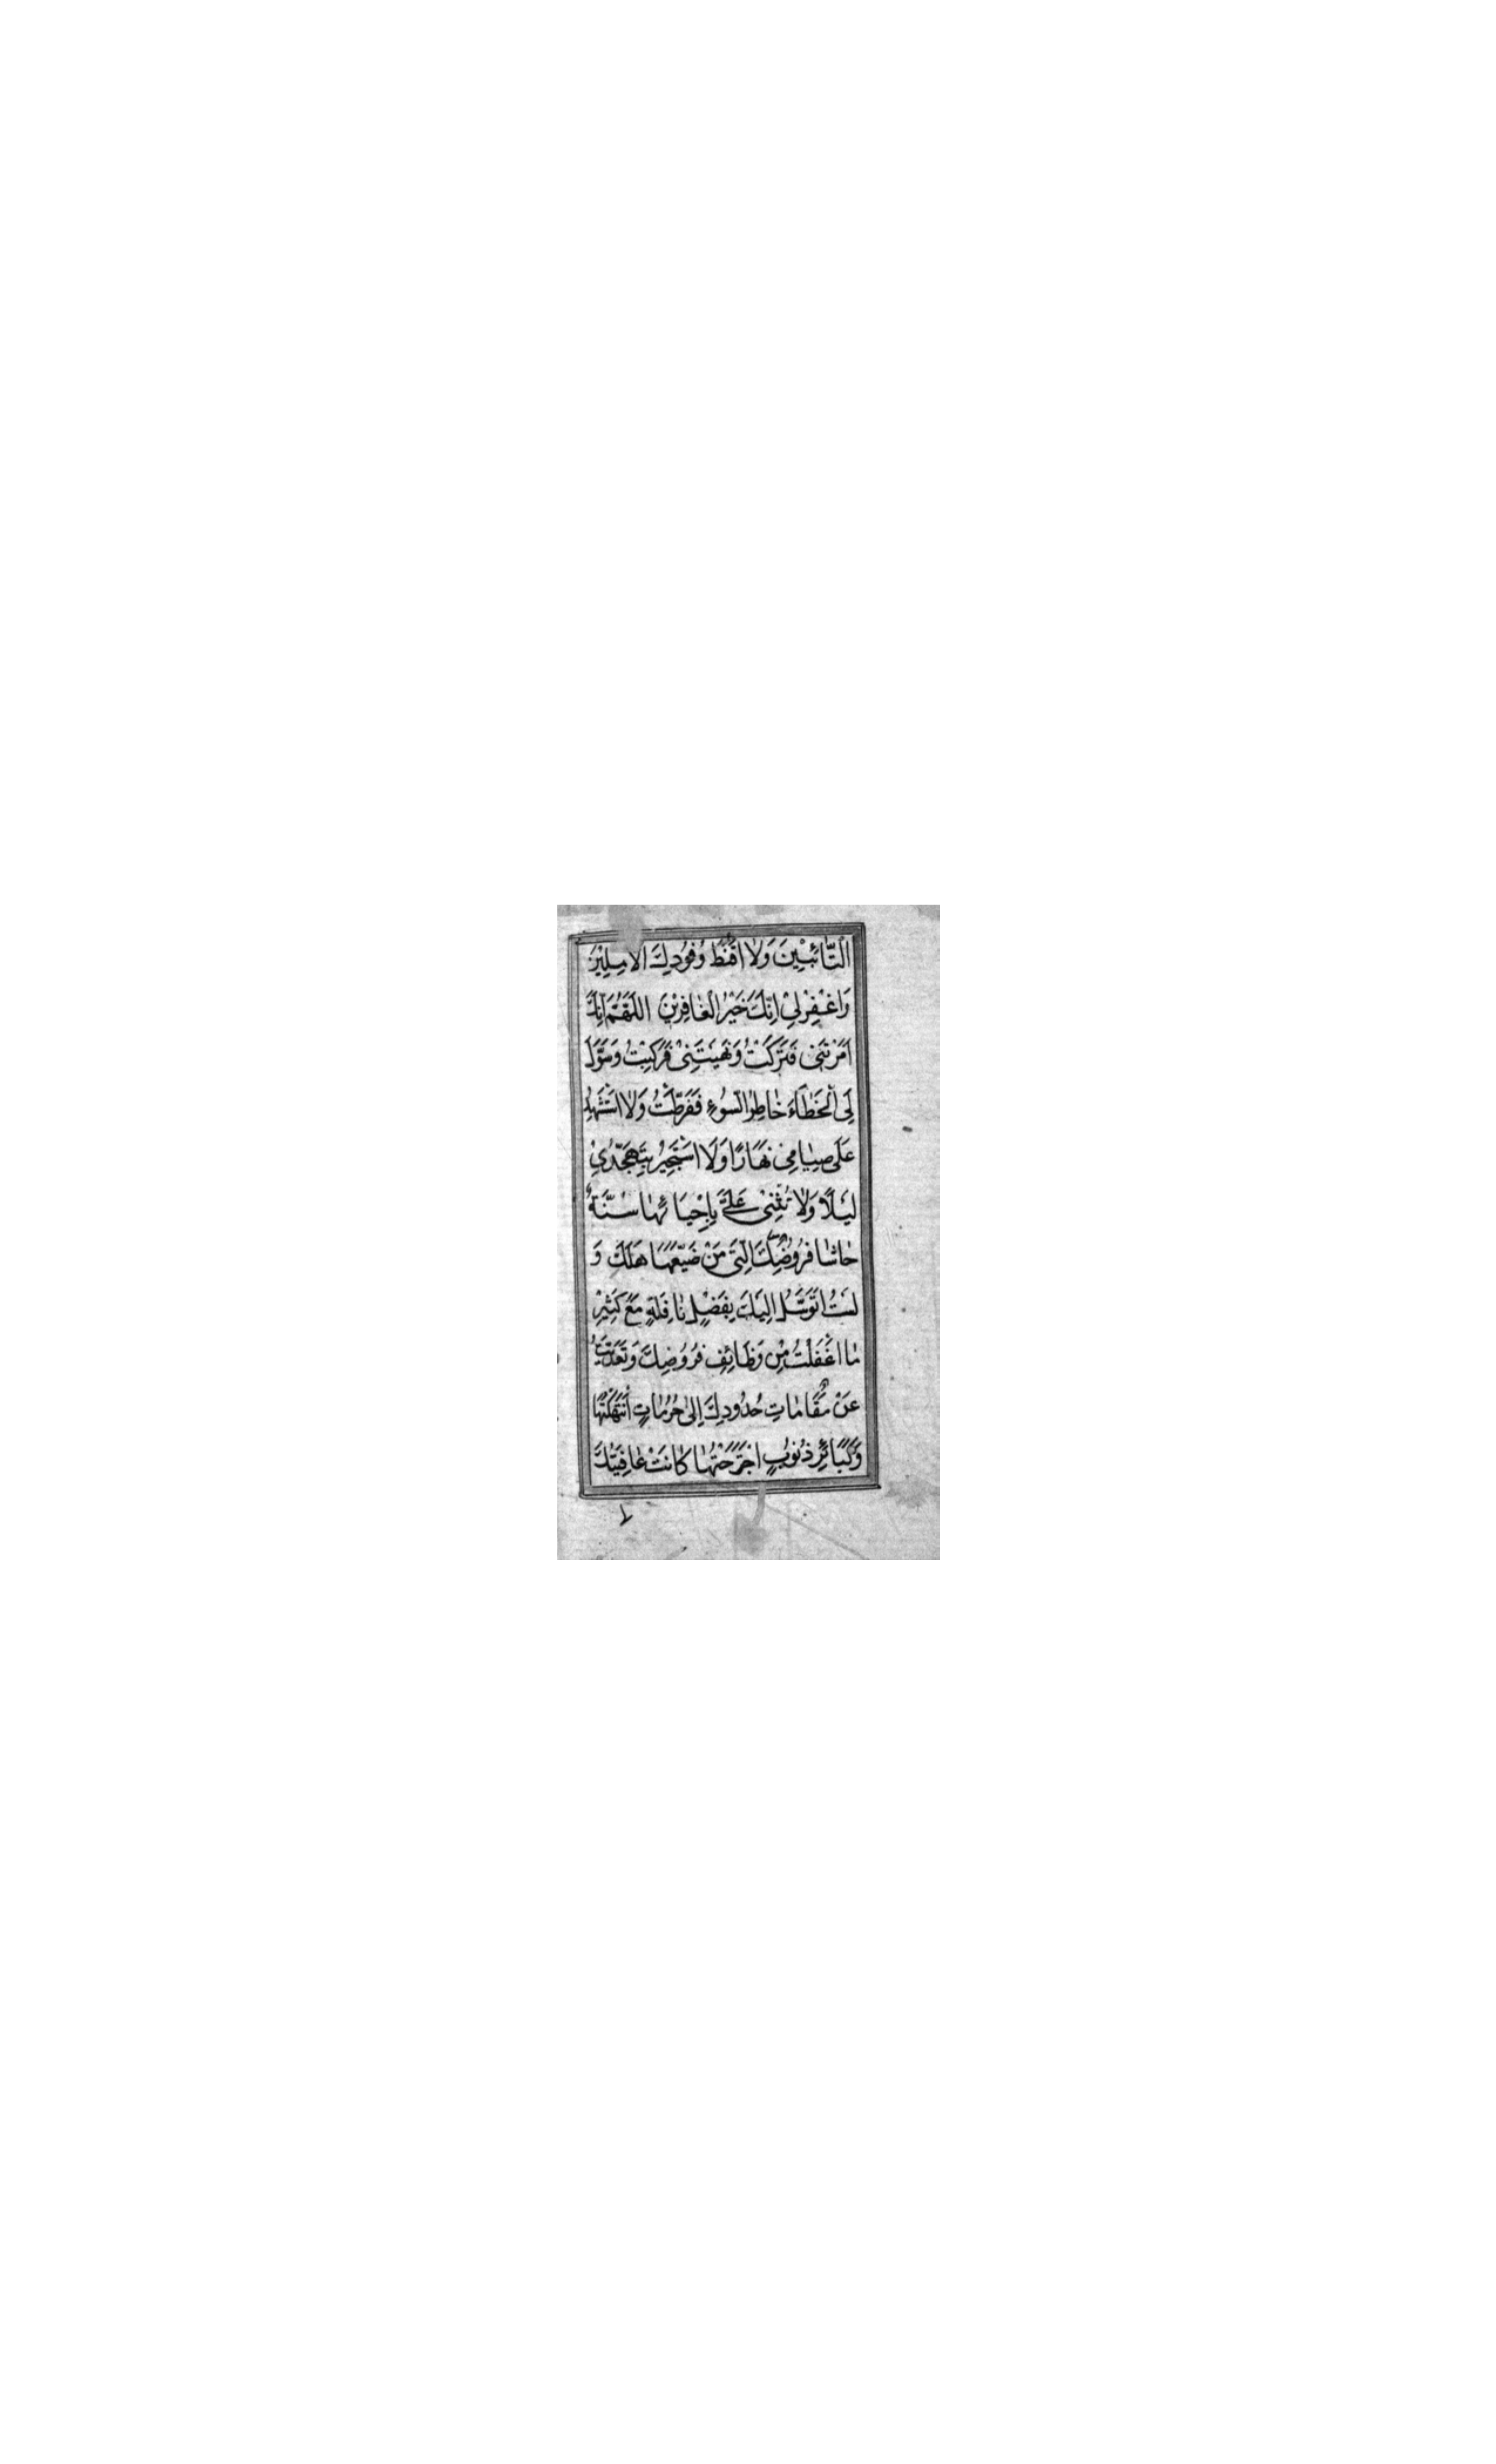 التَّائِبِينَ وَلَا اَقْنَطِ وُفُودِكَ الْاٰمِلِينَ
وَاغْفِرْ لِي اِنَّكَ خَيْرُ الْغَافِرِينَ اللَّهُمَّ اِنَّكَ
اَمَرْتَنِي فَتَرَكْتُ وَنَهَيْتَنِي فَرَكِبْتُ وَسَوَّلَ
لِيَ الْخَطَاءَ خَاطِرُ السُّوءِ فَفَرَّطْتُ وَلَا اَسْتَشْهِدُ
عَلَى صِيَامِي نَهَارًا وَلَا اَسْتَجِيرُ بِتَهَجُّدِي
لَيْلًا وَلَا تُثْنِي عَلَيَّ بِاِحْيَائِهَا سُنَّةٌ
حَاشَا فُرُوضِكَ الَّتِي مَنْ ضَيَّعَهَا هَلَكَ وَ
لَسْتُ اَتَوَسَّلُ اِلَيْكَ بِفَضْلِ نَافِلَةٍ مَعَ كَثِيرِ
مَا اَغْفَلْتُ مِنْ وَظَائِفِ فُرُوضِكَ وَتَعَدَّيْتُ
عَنْ مَقَامَاتِ حُدُودِكَ اِلَى حُرُمَاتٍ اِنْتَهَكْتُهَا
وَكَبَائِرِ ذُنُوبٍ اجْتَرَحْتُهَا كَانَتْ عَافِيَتُكَ